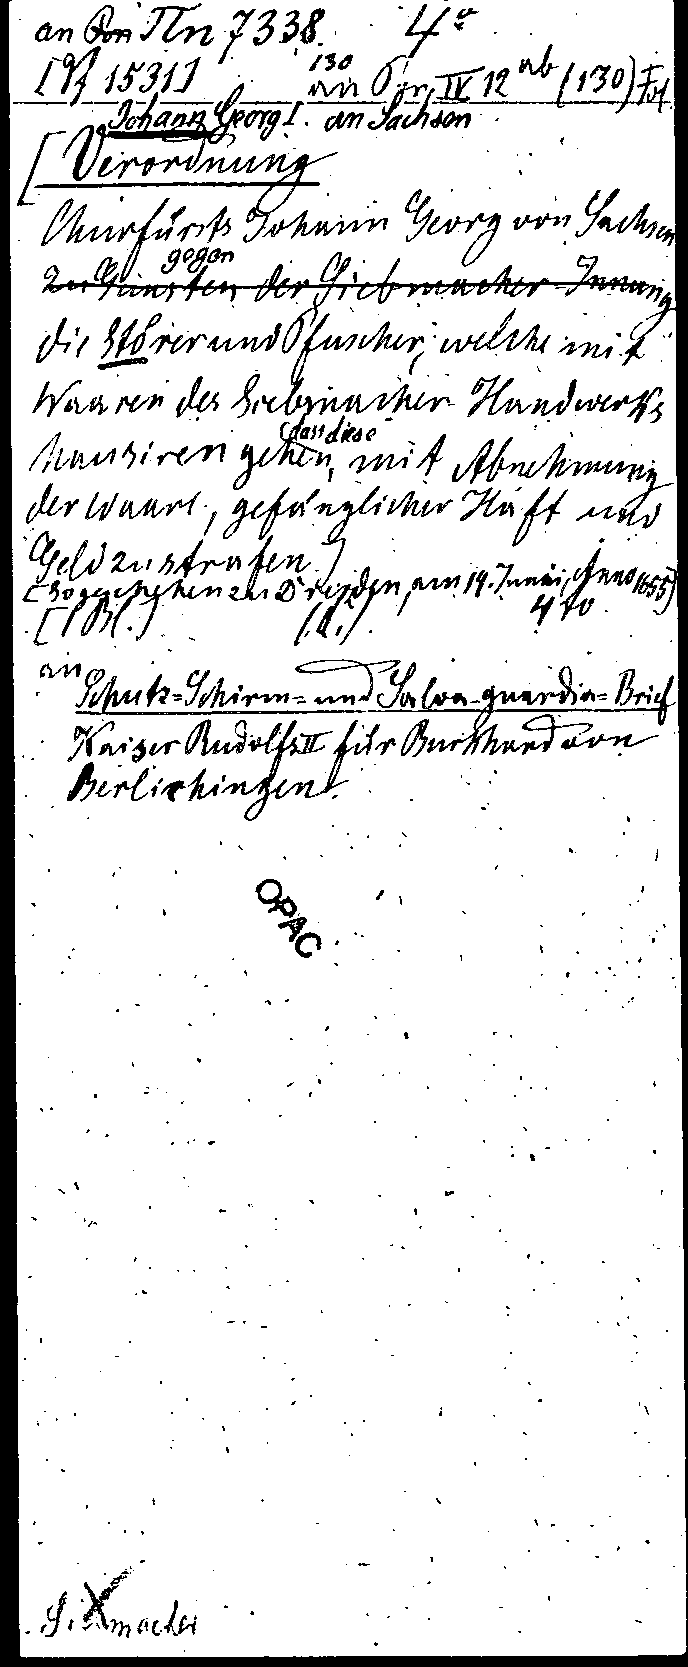 an Pon IIn 7338. 4°
[Yf 1531] 130
an Gr. IV 12 ab (130) Fol
Johann Georg I. an Sachsen
[Verordnung
Churfürsts Johann Georg von Sachsen
gegen
zu Gunsten der Siebmacher-Innung
die Störer und Pfuscher, welche mit
Waaren des Siebmacher Handwerks
hausiren gehen, (dass diese mit Abnehmung
der Waare, gefänglicher Haft und
Geld zu strafen.]
[So geschehen zu Dreszden, am 14. Junii, Anno 1655]
[1 Bl.] 4to
an
Schutz=Schirm=und Salva-guardia=Brief
Kaiser Rudolfs II für Burkhard von
Berlichingen.
OPAC